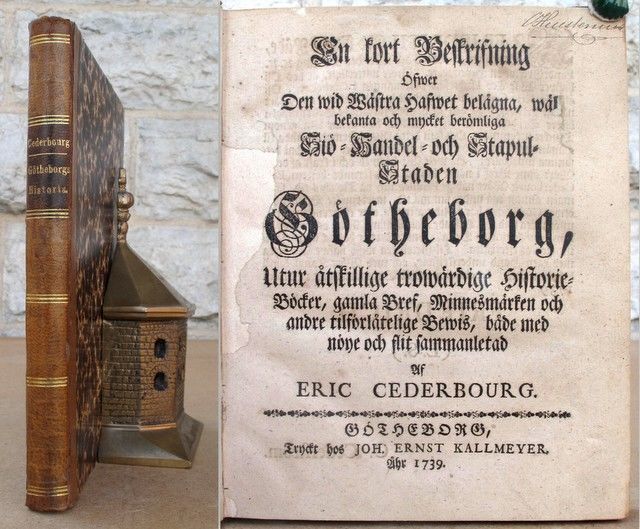 Cederbourg
Götheborgs
Historia.
En kort Beskrifning
Öfwer
Den wid Wästra Hafwet belägna, wäl
bekanta och mycket berömliga
Siö-Handel-och Stapul-
Staden
Götheborg,
Utur åtskillige trowärdige Historie-
Böcker, gamla Bref, Minnesmärken och
andre tilförlåtelige Bewis, både med
nöye och flit sammanletad
Af
ERIC CEDERBOURG.
GÖTHEBORG,
Tryckt hos JOH. ERNST KALLMEYER.
Åhr 1739.